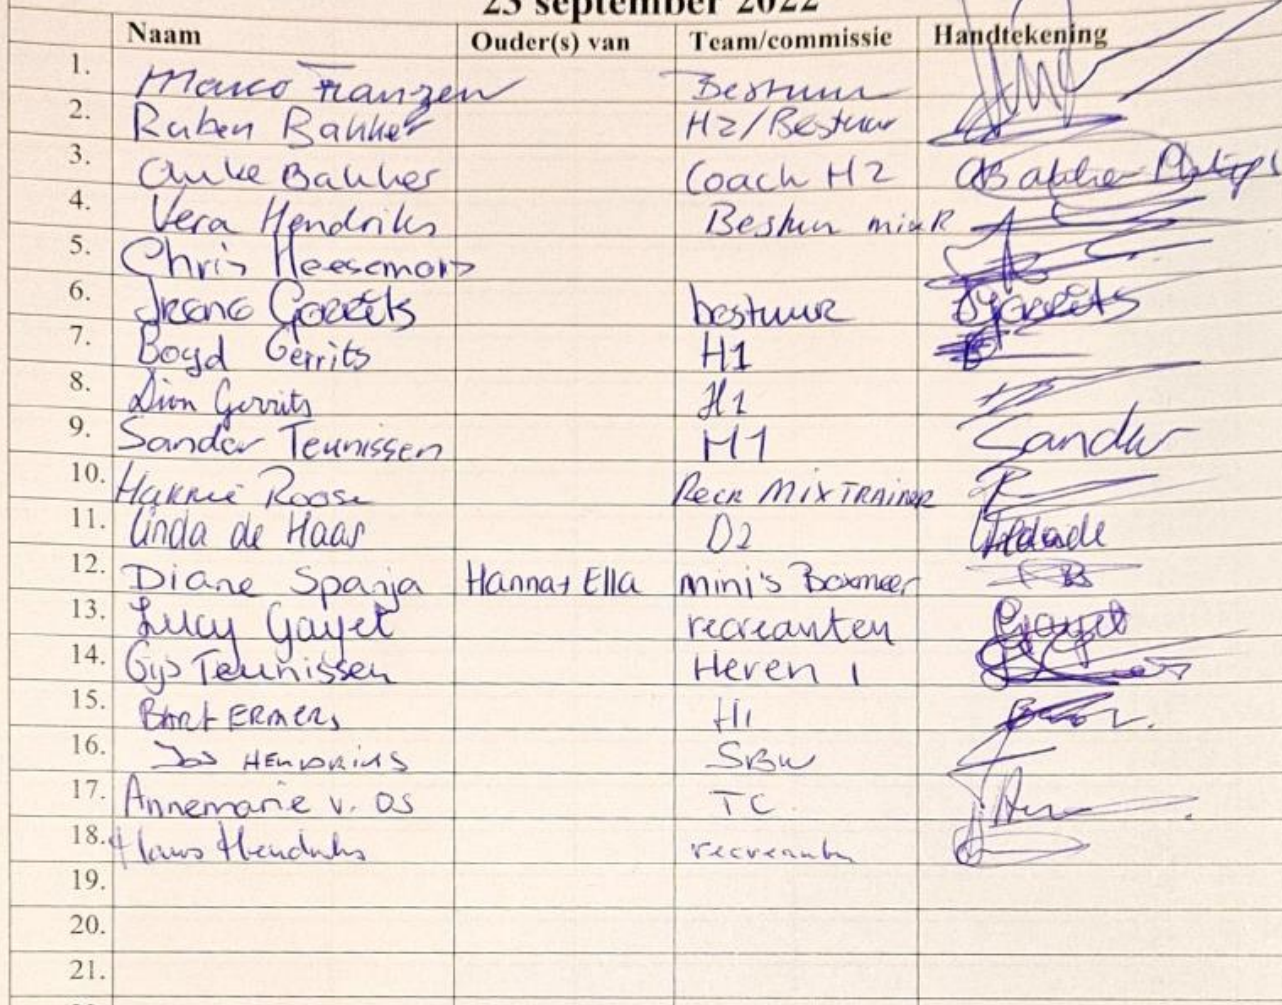 23 september 2022
Naam Ouder(s) van Team/commissie Handtekening
1. Marco Franzen Bestuur
2. Ruben Bakker H2/Bestuur
3. Anke Bakker Coach H2
4. Vera Hendriks Bestuur mixR
5. Chris Heesemans
6. Irene Gerrits bestuur
7. Boyd Gerrits H1
8. Dion Gerrits H1
9. Sander Teunissen H1 Sander
10. Roose Recr MIXTRAINER
11. Linda de Haas D2
12. Diane Spanja Hanna+ Ella mini's Boxmeer
13. Lucy Gayet recreanten Gayet
14. Gijs Teunissen Heren 1
15. Bart ERMERS H1
16. Jos HENDRIKS SBW
17. Annemarie v. Os TC
18. Hans Hendriks recreanten
19.
20.
21.